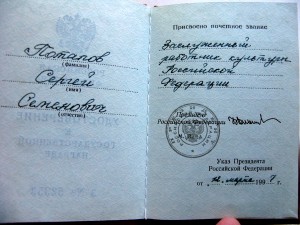 Потапов
(фамилия)
Сергей
(имя)
Семенович
(отчество)
Присвоено почетное звание
Заслуженный
работник культуры
Российской
Федерации
Президент
Российской Федерации
Указ Президента
Российской Федерации
от марта 1997 г.